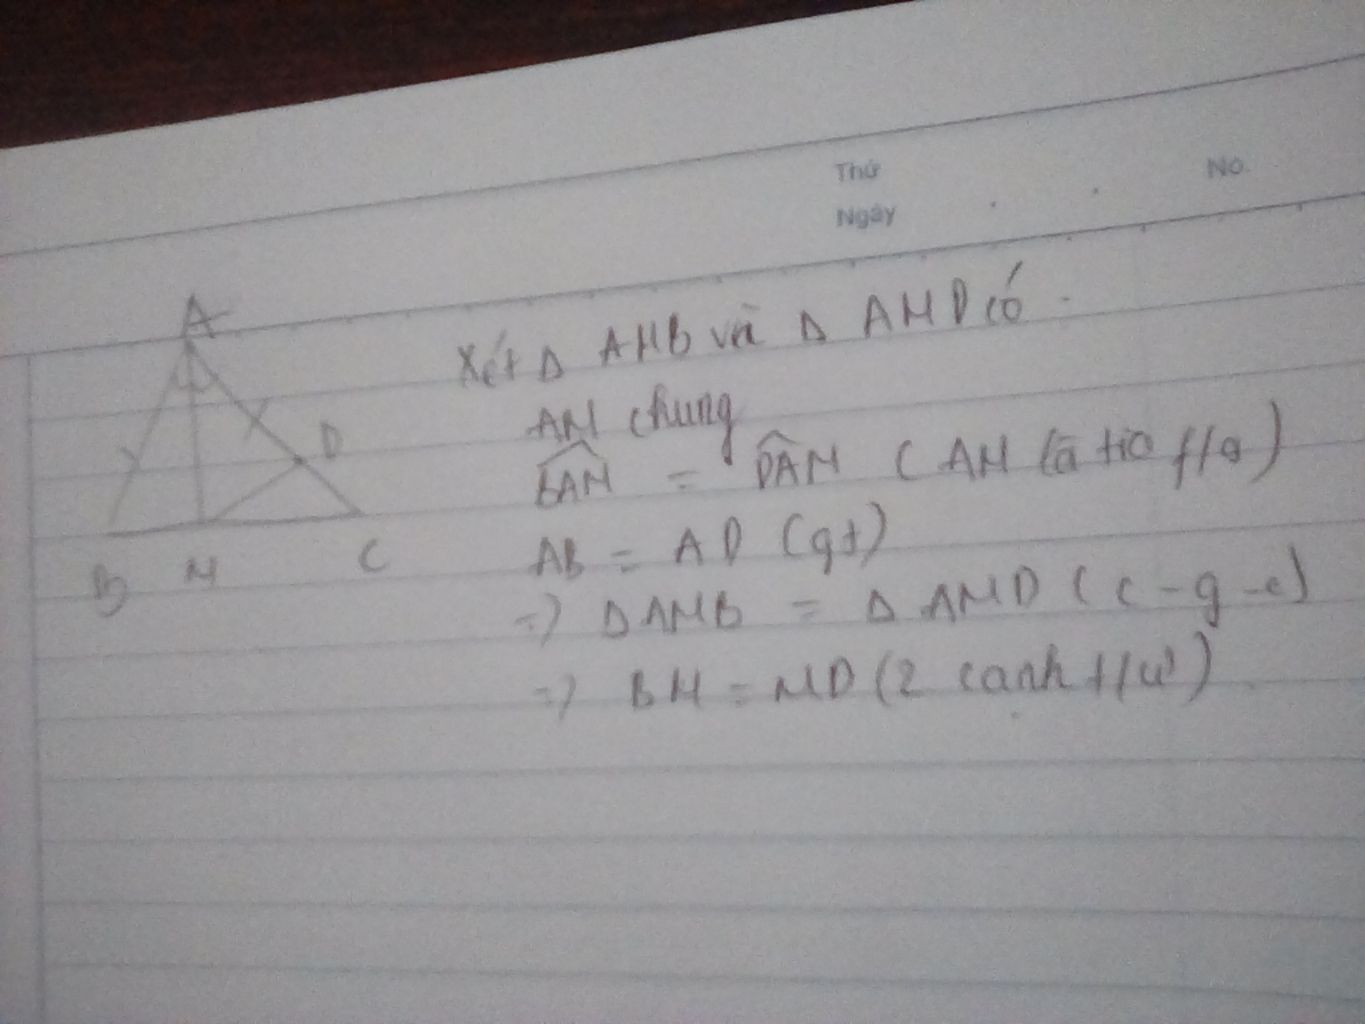 Thứ
No.
Ngày
A
D
B M C
Xét Δ AMB và Δ AMD có
AM chung
BAM = DAM ( AM là tia f/g )
AB = AD (gt)
=) Δ AMB = Δ AMD ( c - g - c)
=) BM = MD (2 cạnh t/ư)